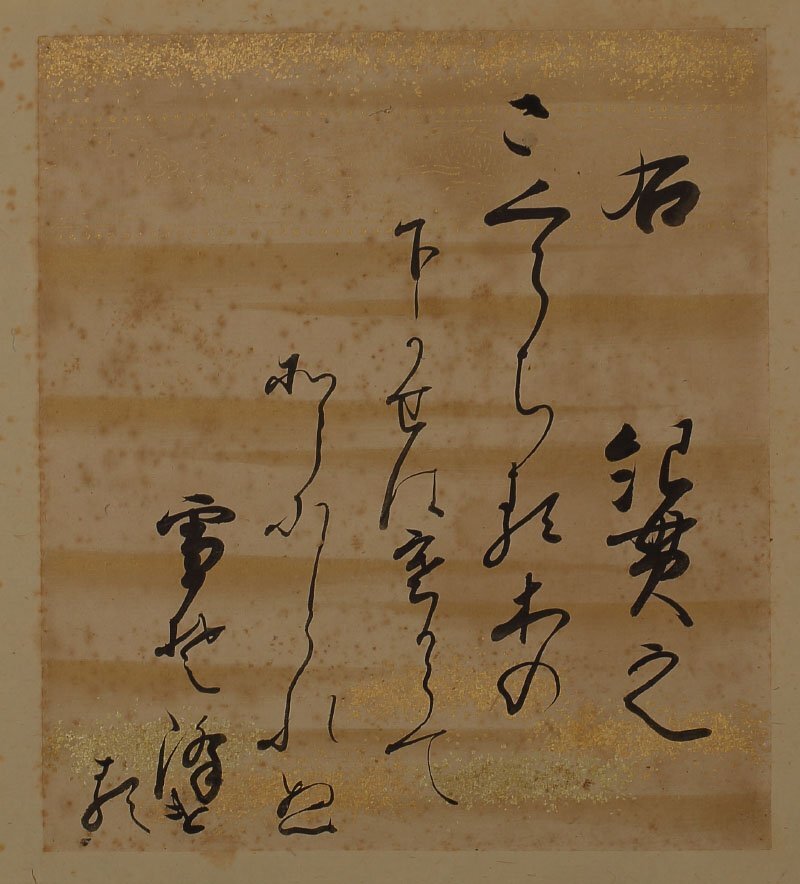 右　紀貫之
さくらちる木の
下かせは寒からて
そらにしられぬ
雪そ降け
る